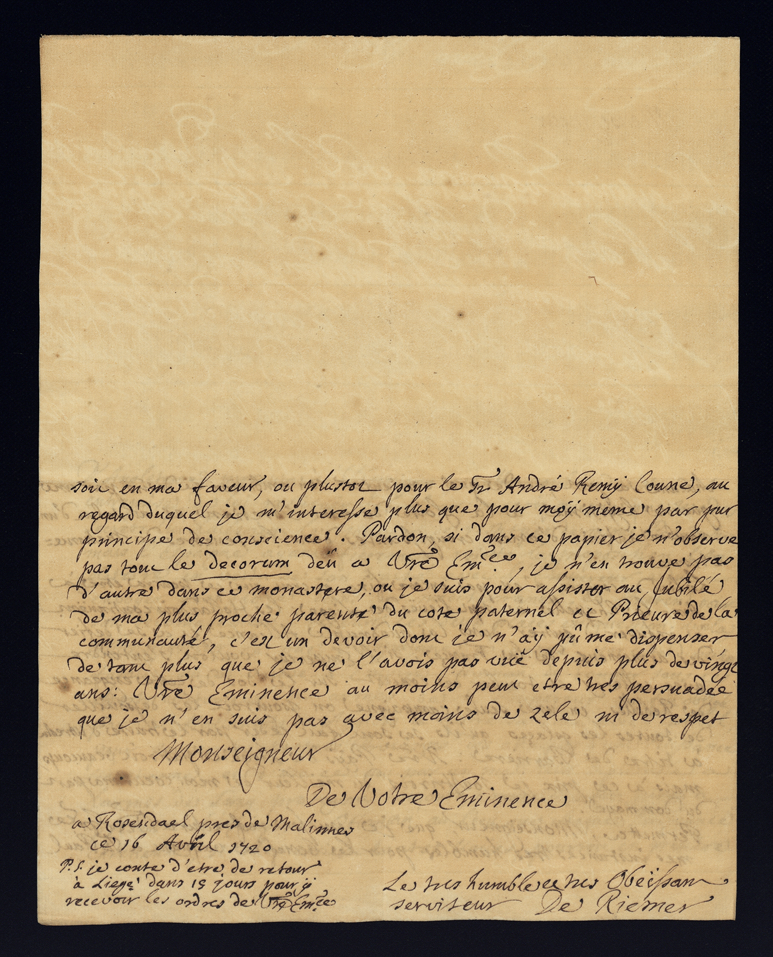 soit en ma faveur, ou plustot pour le Sr André Remÿ Coune, au
regard duquel je m'interesse plus que pour moÿ meme par pur
principe de conscience. Pardon, si dans ce papier je n'observe
pas tout le decorum deü a Vre Emce, je n'en trouve pas
d'autre dans ce monastere, ou je suis pour assister au jubilé
de ma plus proche parente du coté paternel et Prieure de la
communauté, c'est un devoir dont je n'aÿ pû me dispenser
de tant plus que je ne l'avois pas vuë depuis plus de vingt
ans: Vre Eminence au moins peut etre tres persuadée
que je n'en suis pas avec moins de zele ni de respet
Monseigneur
De Votre Eminence
a Rosendael pres de Malinnes
ce 16 Avril 1720
P.S. je conte d'etre de retour
à Liege dans 15 jours pour ÿ
recevoir les ordres de Vre Emce
Le tres humble et tres Obeïssant
serviteur De Riemer